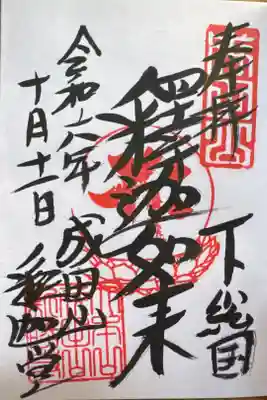 奉拝
下総国
釋迦如来
令和六年
十月十一日
成田山
釋迦堂